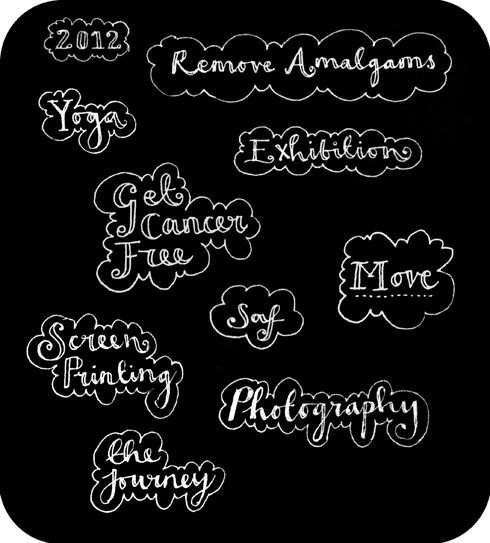 2012
Remove Amalgams
Yoga
Exhibition
Get
Cancer
Free
Move
Saf
Screen
Printing
Photography
the
Journey